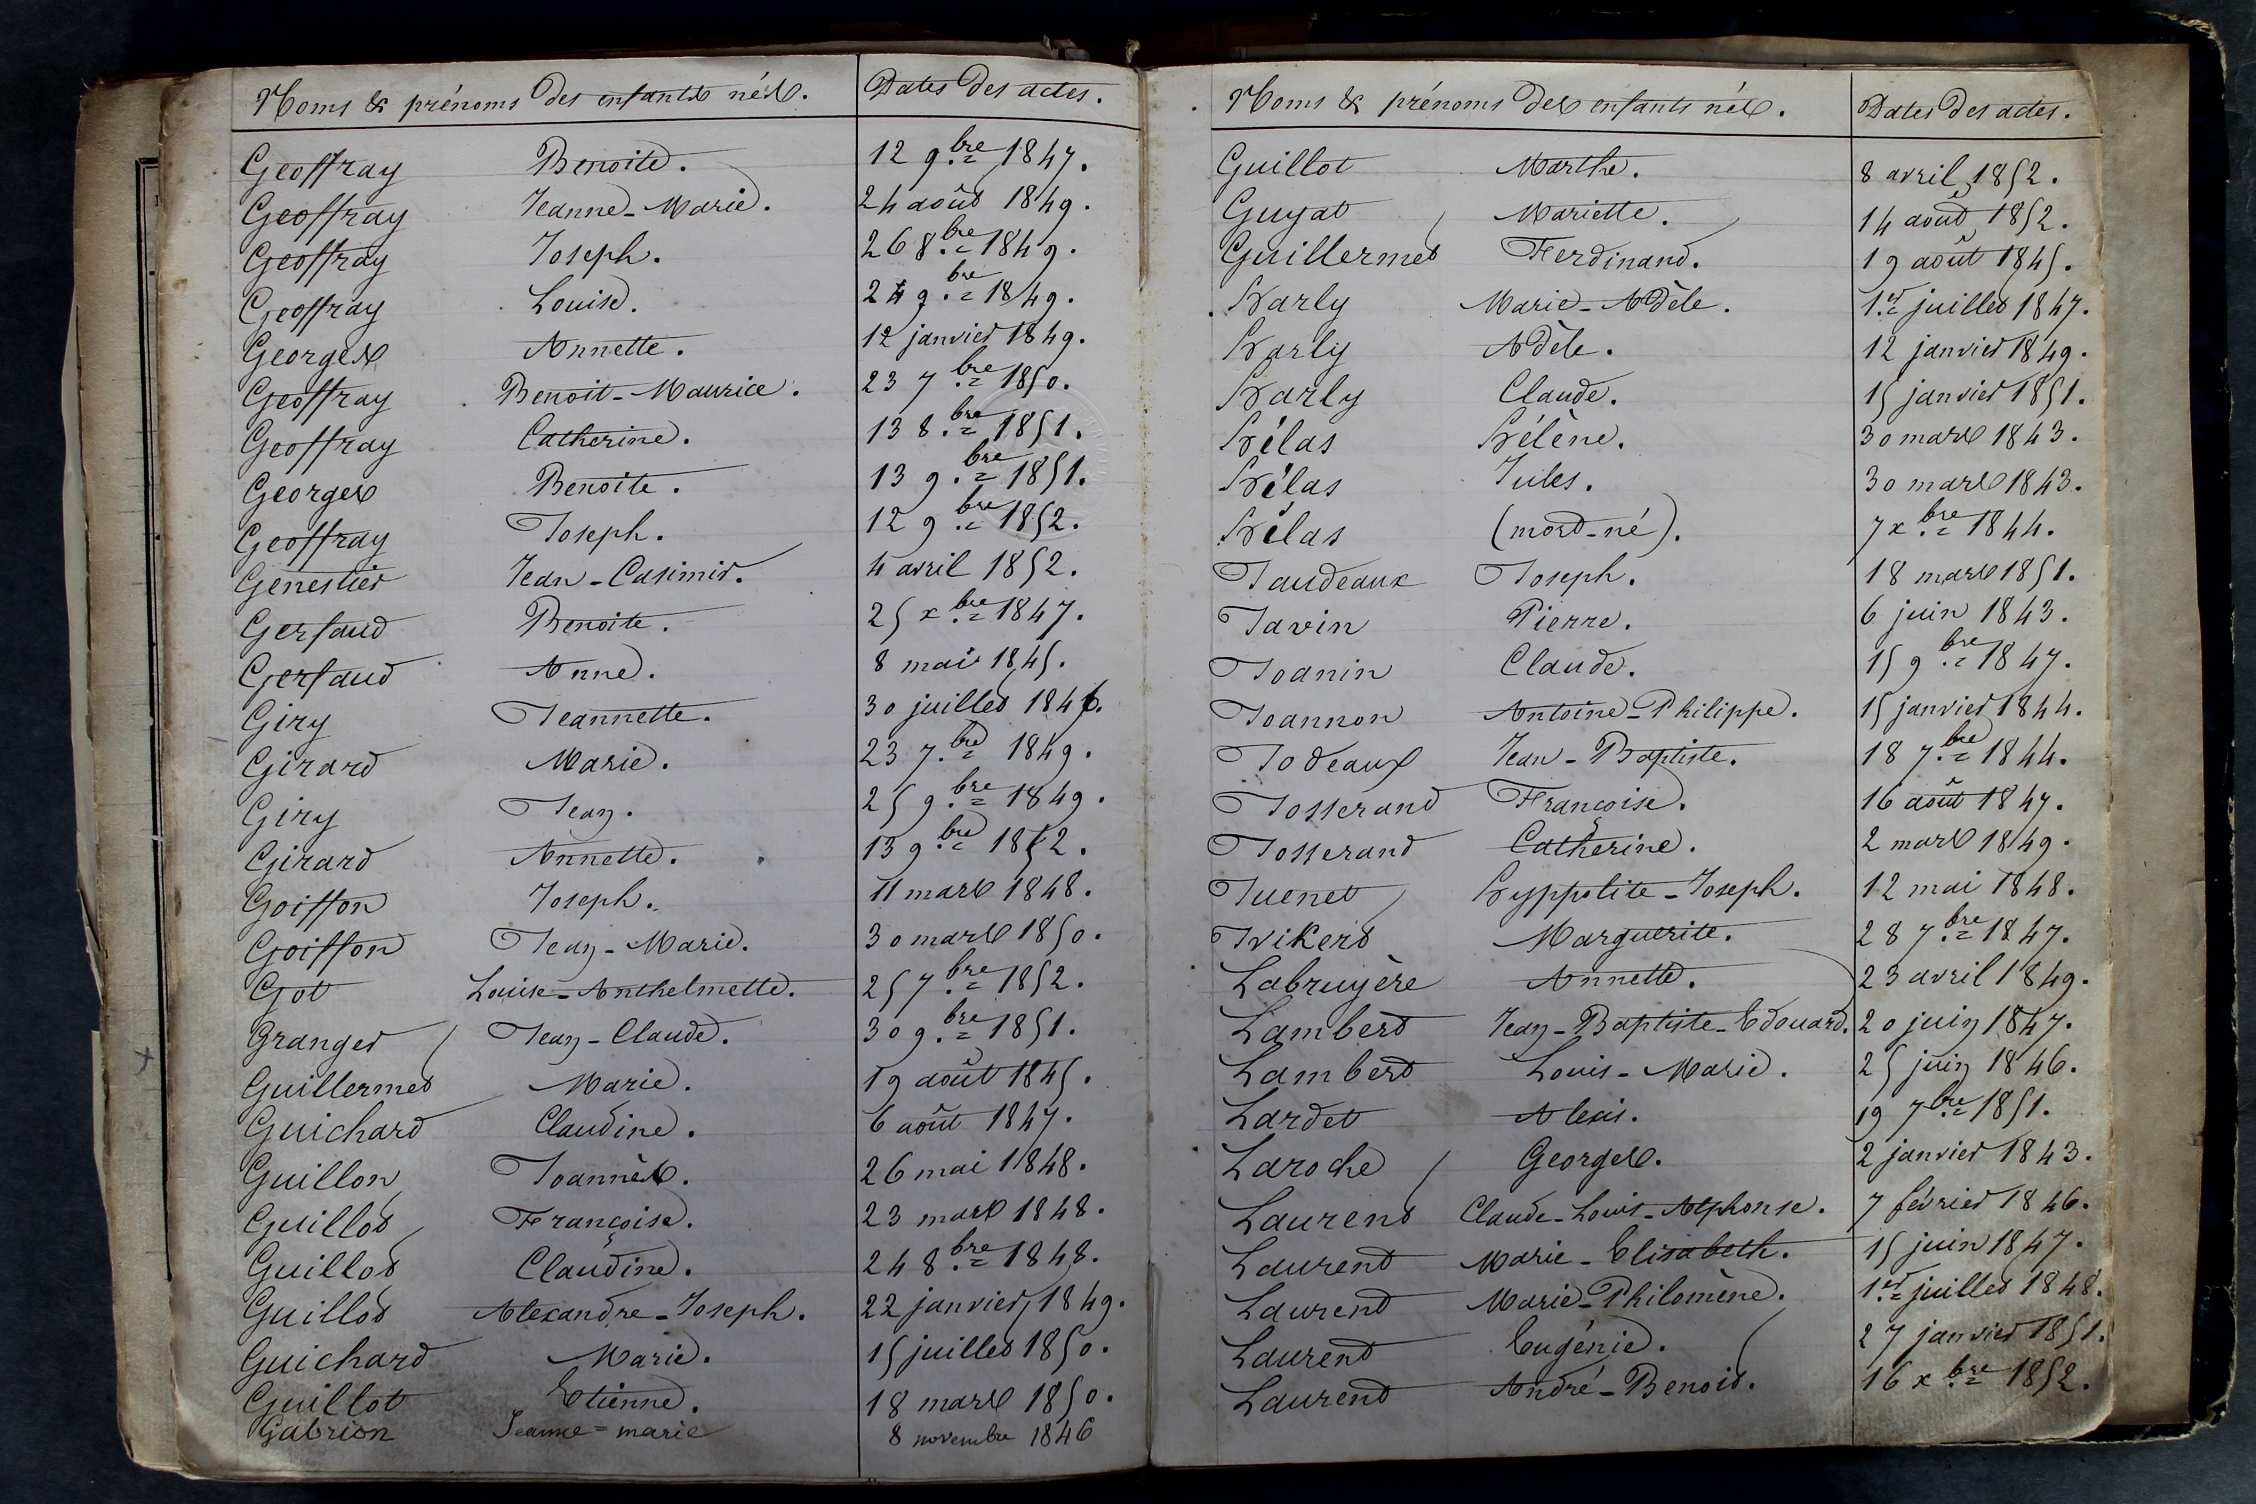 Noms & prénoms des enfants nés. Dates des actes.
Geoffray Benoite. 12 9.bre 1847.
Geoffray Jeanne-Marie. 24 août 1849.
Geoffray Joseph. 26 8.bre 1849.
Geoffray Louise. 24 9.bre 1849.
Georges Annette. 12 janvier 1849.
Geoffray Benoit-Maurice. 23 7.bre 1850.
Geoffray Catherine. 13 8.bre 1851.
Georges Benoite. 13 9.bre 1851.
Geoffray Joseph. 12 9.bre 1852.
Genestier Jean-Casimir. 4 avril 1852.
Gerfaud Benoite. 25 x.bre 1847.
Gerfaud Anne. 8 mai 1845.
Giry Jeannette. 30 juillet 1846.
Girard Marie. 23 7.bre 1849.
Giry Jean. 25 9.bre 1849.
Girard Annette. 13 9.bre 1852.
Goiffon Joseph. 11 mars 1848.
Goiffon Jean-Marie. 30 mars 1850.
Got Louise-Anthelmette. 25 7.bre 1852.
Granger Jean-Claude. 30 9.bre 1851.
Guillermet Marie. 19 août 1845.
Guichard Claudine. 6 août 1847.
Guillon Joannès. 26 mai 1848.
Guillot Françoise. 23 mars 1848.
Guillot Claudine. 24 8.bre 1848.
Guillot Alexandre-Joseph. 22 janvier 1849.
Guichard Marie. 15 juillet 1850.
Guillot Etienne. 18 mars 1850.
Gabrion Jeanne=marie 8 novembre 1846
Noms & prénoms des enfants nés. Dates des actes.
Guillot Marthe. 8 avril 1852.
Guyat Mariette. 14 août 1852.
Guillermet Ferdinand. 19 août 1845.
Harly Marie-Adèle. 1.er juillet 1847.
Harly Adèle. 12 janvier 1849.
Harly Claude. 15 janvier 1851.
Hélas Hélène. 30 mars 1843.
Hélas Jules. 30 mars 1843.
Hélas (mort-né). 7 x.bre 1844.
Jaudeaux Joseph. 18 mars 1851.
Javin Pierre. 6 juin 1843.
Joanin Claude. 15 9.bre 1847.
Joannon Antoine-Philippe. 15 janvier 1844.
Jodeaux Jean-Baptiste. 18 7.bre 1844.
Josserand Françoise. 16 août 1847.
Josserand Catherine. 2 mars 1849.
Juenet Hyppolite-Joseph. 12 mai 1848.
Jvikert Marguerite. 28 7.bre 1847.
Labruyère Annette. 23 avril 1849.
Lambert Jean-Baptiste-Edouard. 20 juin 1847.
Lambert Louis-Marie. 25 juin 1846.
Lardet Alexis. 19 7.bre 1851.
Laroche Georges. 2 janvier 1843.
Laurent Claude-Louis-Alphonse. 7 février 1846.
Laurent Marie-Elisabeth. 15 juin 1847.
Laurent Marie-Philomène. 1.er juillet 1848.
Laurent Eugénie. 27 janvier 1851.
Laurent André-Benoit. 16 x.bre 1852.